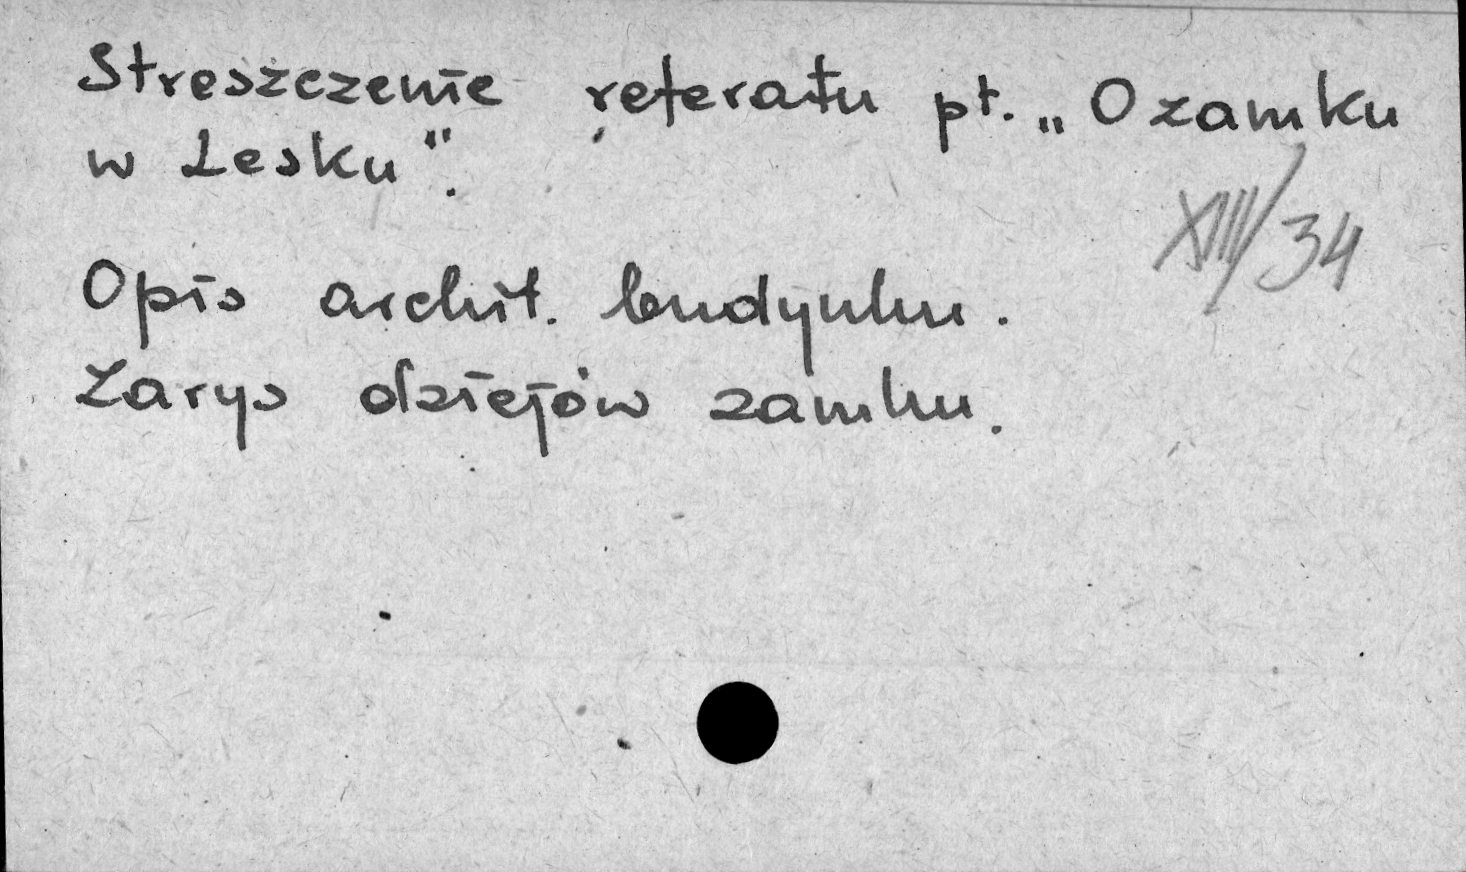 Streszczenie referatu pt. „O zamku
w Lesku".
XIII/34
Opis archit. budynku.
Zarys dziejów zamku.